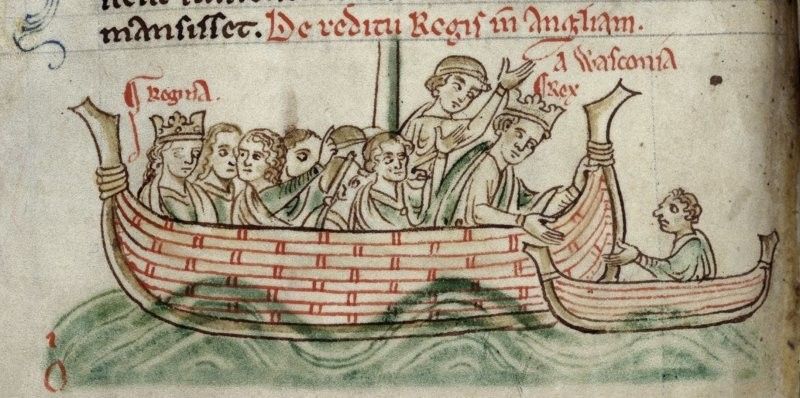 mansisset. De reditu Regis in̄ Angliam.
a Wasconia
¶ Regina.
¶ Rex